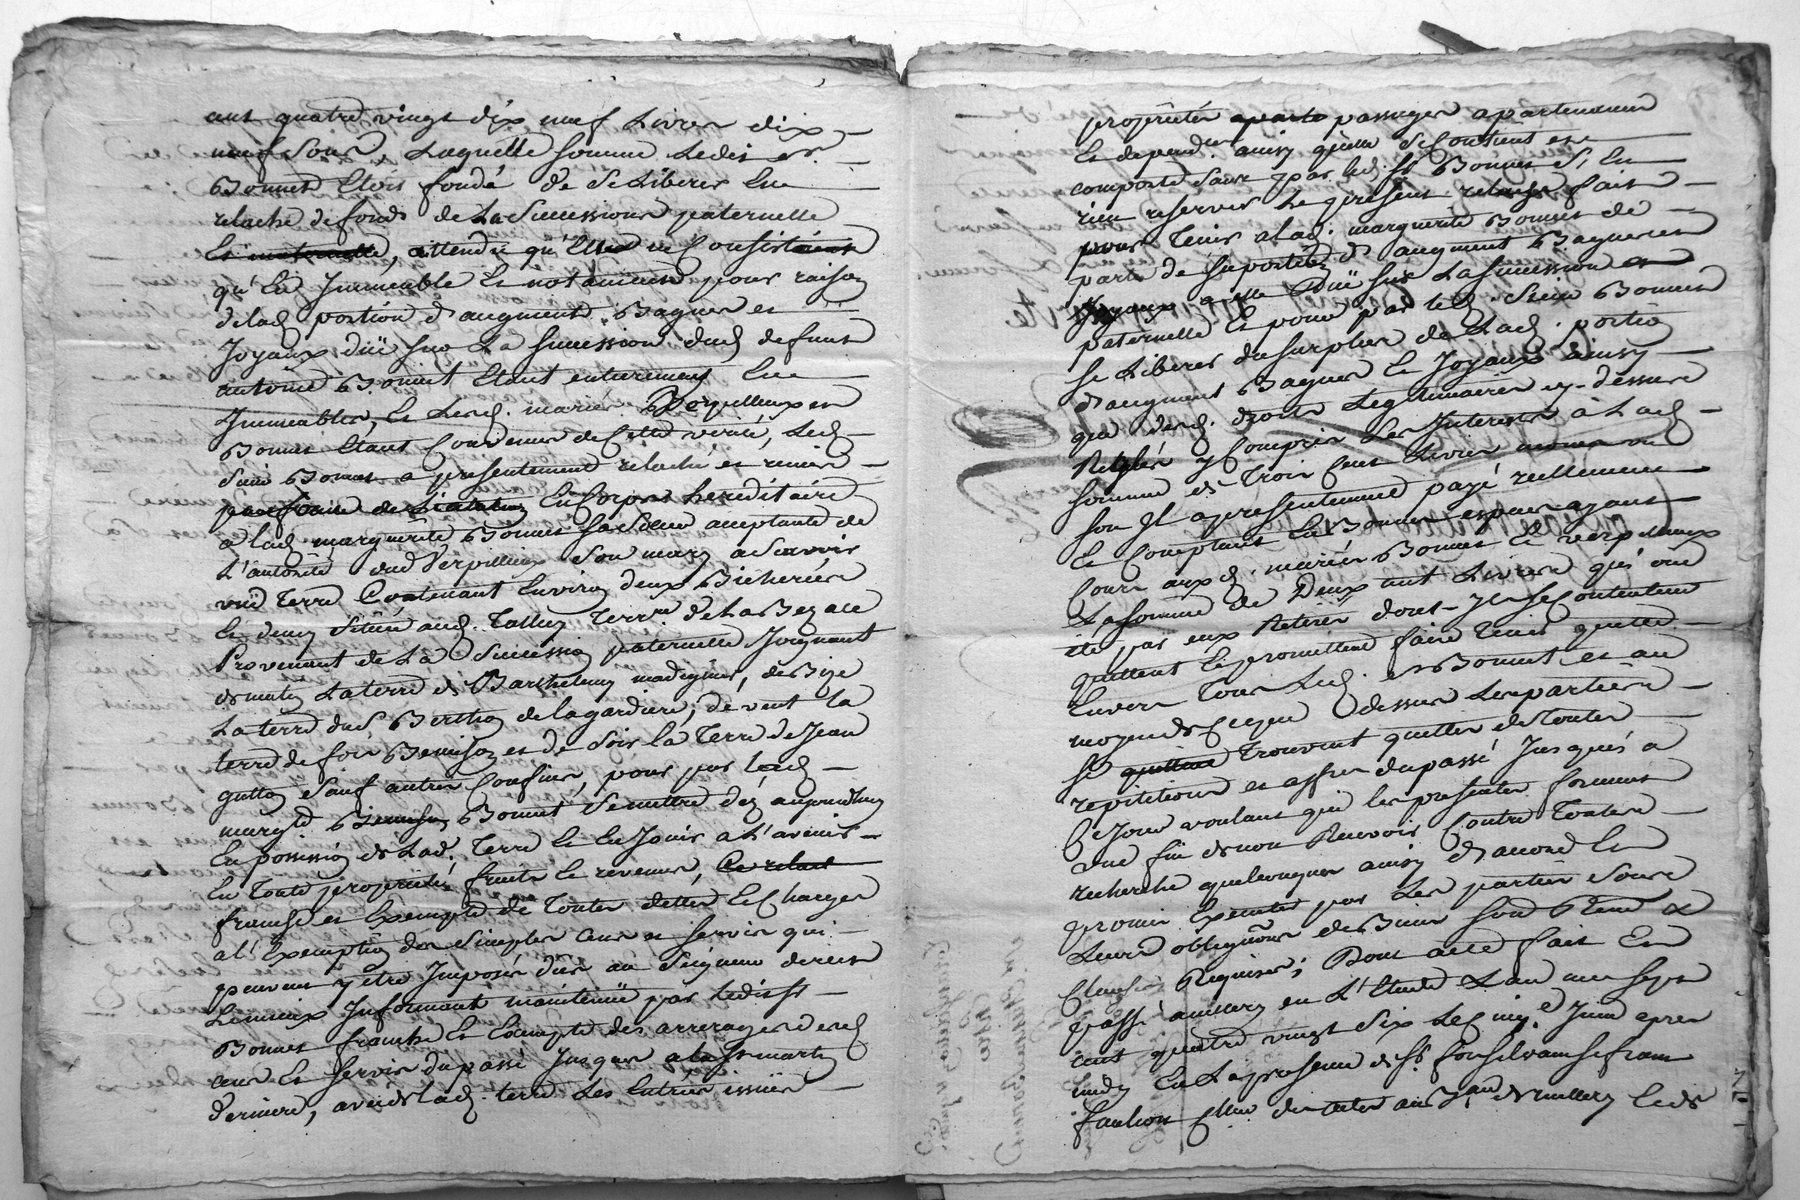 cent quatre vingt dix neuf Livres dix
neuf sous Laquelle somme Ledit sr.
Bonnet Etoit fondé de se Liberer En
relache de fonds de La Succession paternelle
Et maternelle, attendu qu'Elle ne Consistoient
qu'En Immeuble Et notament pour raison
de lad. portion d'augment Bagues et
Joyaux düe sur La succession dud. defunt
antoine Bonnet Etant entierement En
Immeubles, Et Lesd. mariés Verpilleux et
Bonnet Etant Convenus de Cette verité, Led.
Sieur Bonnet a presentement relaché et remis
En Corps hereditaire
a lad. marguerite Bonnet sa Soeur acceptante de
L'autorité dud Verpillieux Son mary a Scavoir
une Terre Contenant Environ deux Bicherées
Et demy Scituée aud. Talluy Terr.re de La
Provenant de La Succession paternelle Joignant
de matin La terre de Barthelemy madignier, de Bize
La terre du S. Berthon de la gardiere, de vent la
terre de et de Soir la Terre de Jean
gutton Sauf autres Confins, pour par lad.
margte. Bonnet Se mettre dez aujourdhuy
En possession de Lad. Terre Et En Jouir a L'avenir
En Toute proprieté fruits Et revenus,
franche et Exempte de Toutes dettes Et Charges
a l'Exemption des Simples Cens et servis qui
peuvent y être Imposés dûs au Seigneur direct
maintenüe par Ledit sr
Bonnet franche Et Exempte des arrerages desd.
cens Et servis du passé Jusques a la St martin
derniere, avec de lad. terre Les Entrées issües
proprietés passages apartenances
Et depend.ces ainsy qu'elle Se Contient et
comporte Sans par led. Sr Bonnet S'En
rien reserver Le present relache fait
pour Tenir a lad. marguerite Bonnet de
partie de sa portion d'augment Bagues et
Joyaux a elle Düe sur La succession
paternelle Et pour par led. Sieur Bonnet
se Liberer du surplus de Lad. portion
d'augment Bagues Et Joyaux ainsy
que desd. droits Legitimaires cy-dessus
Reglés y Compris Les Interets à Lad.
somme de Trois Cent Livres
Il a presentement payé reellement
Et Comptant En Bonnes especes ayant
Cours auxd. mariés Bonnet Et Verpilleux
La somme de Deux cent Livres qui ont
été par eux Retirés dont ils se Contentent
quittent Et promettent faire Tenir quitte
Envers Tous Led. Sr Bonnet et au
moyen de Ce que dessus Les parties
se quittent Trouvent quittes de Toutes
repetitions et affres du passé Jusques a
Ce Jour voulant que les presentes forment
une fin de non Recevoir Contre Toutes
recherche quelconques ainsy d'accord Et
promis Executer par Les parties Sous
Leurs obligations de Biens
Clauses Requises; Dont acte fait Et
passé a millery en L'Etude L'an mil sept
cent quatre vingt Six Le Cinq.e Juin apres
midy En La presence de Sr.
millery